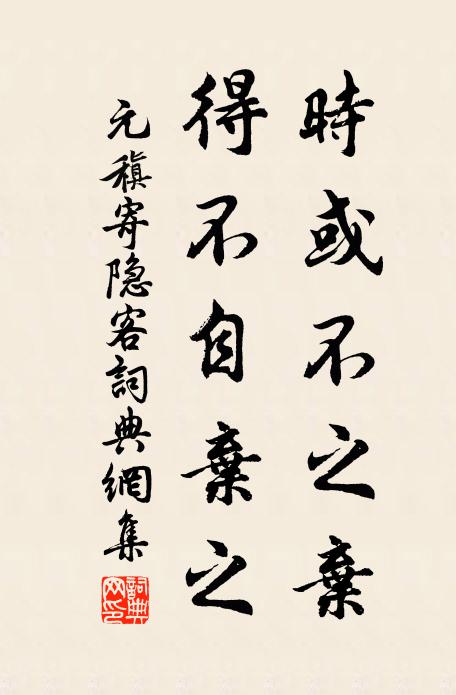 時或不之棄
得不自棄之
元稹寄隐客詞典網集
詞典
网印